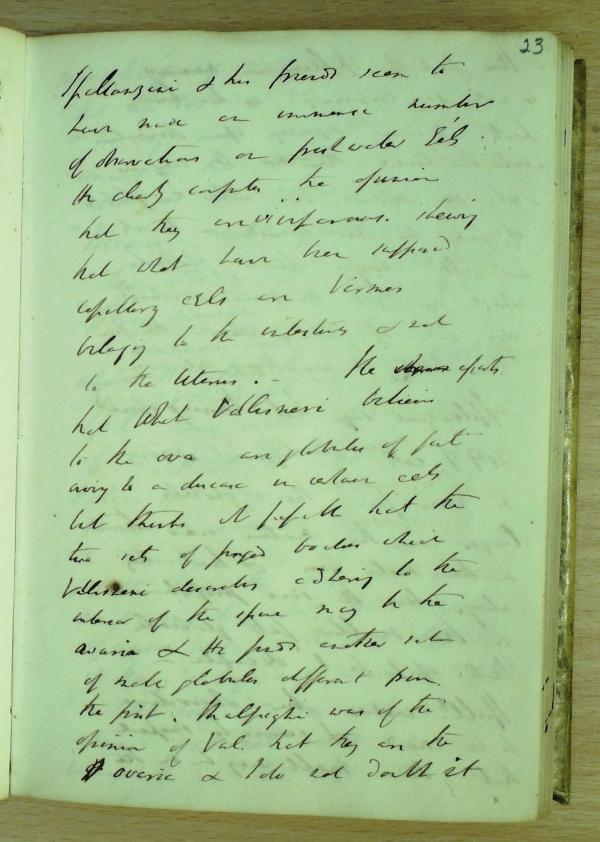 23
Spallanzani & his friends seem to
have made an immense number
of observations on fresh water Eels.
He clearly confutes the opinion
that they are viviparous. shewing
that what have been supposed
capillary Eels are Vermes
belonging to the intestines & not
to the Uterus. - He asserts
that What Vallisneri believes
to be ova are globules of fat
owing to a disease in certain eels
but thinks it possible that the
two sets of fringed bodies which
Vallisneri describes adhering to the
interior of the spine may be the
ovaria & He finds another set
of such globules different from
the first. Malpeghi was of the
opinion of Val. that they are the
ovaria & I do not doubt it